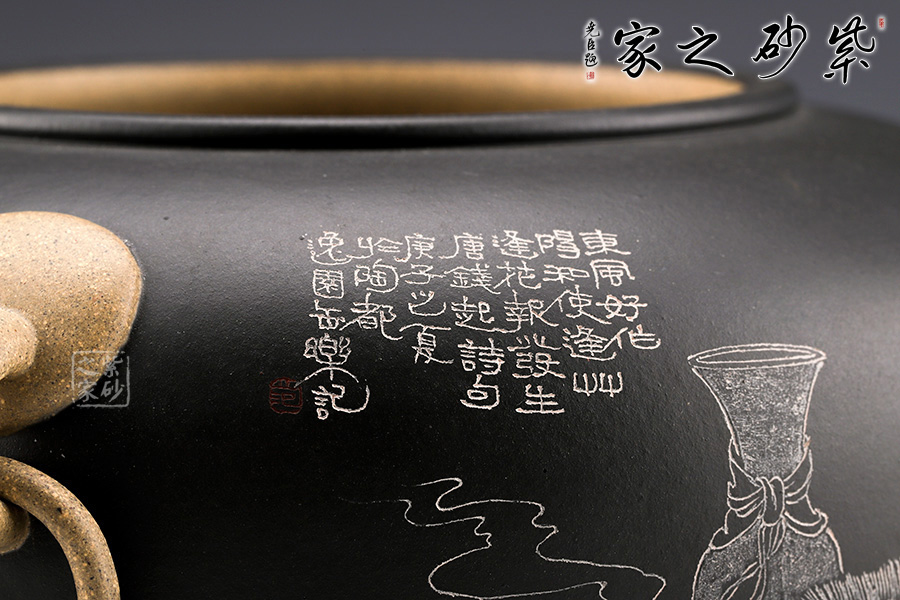 紫砂之家
尧臣题
東風好作
陽和使逢艸
逢花報發生
唐錢起詩句
庚子之夏
於陶都
逸園缶樂記
范
紫砂之家